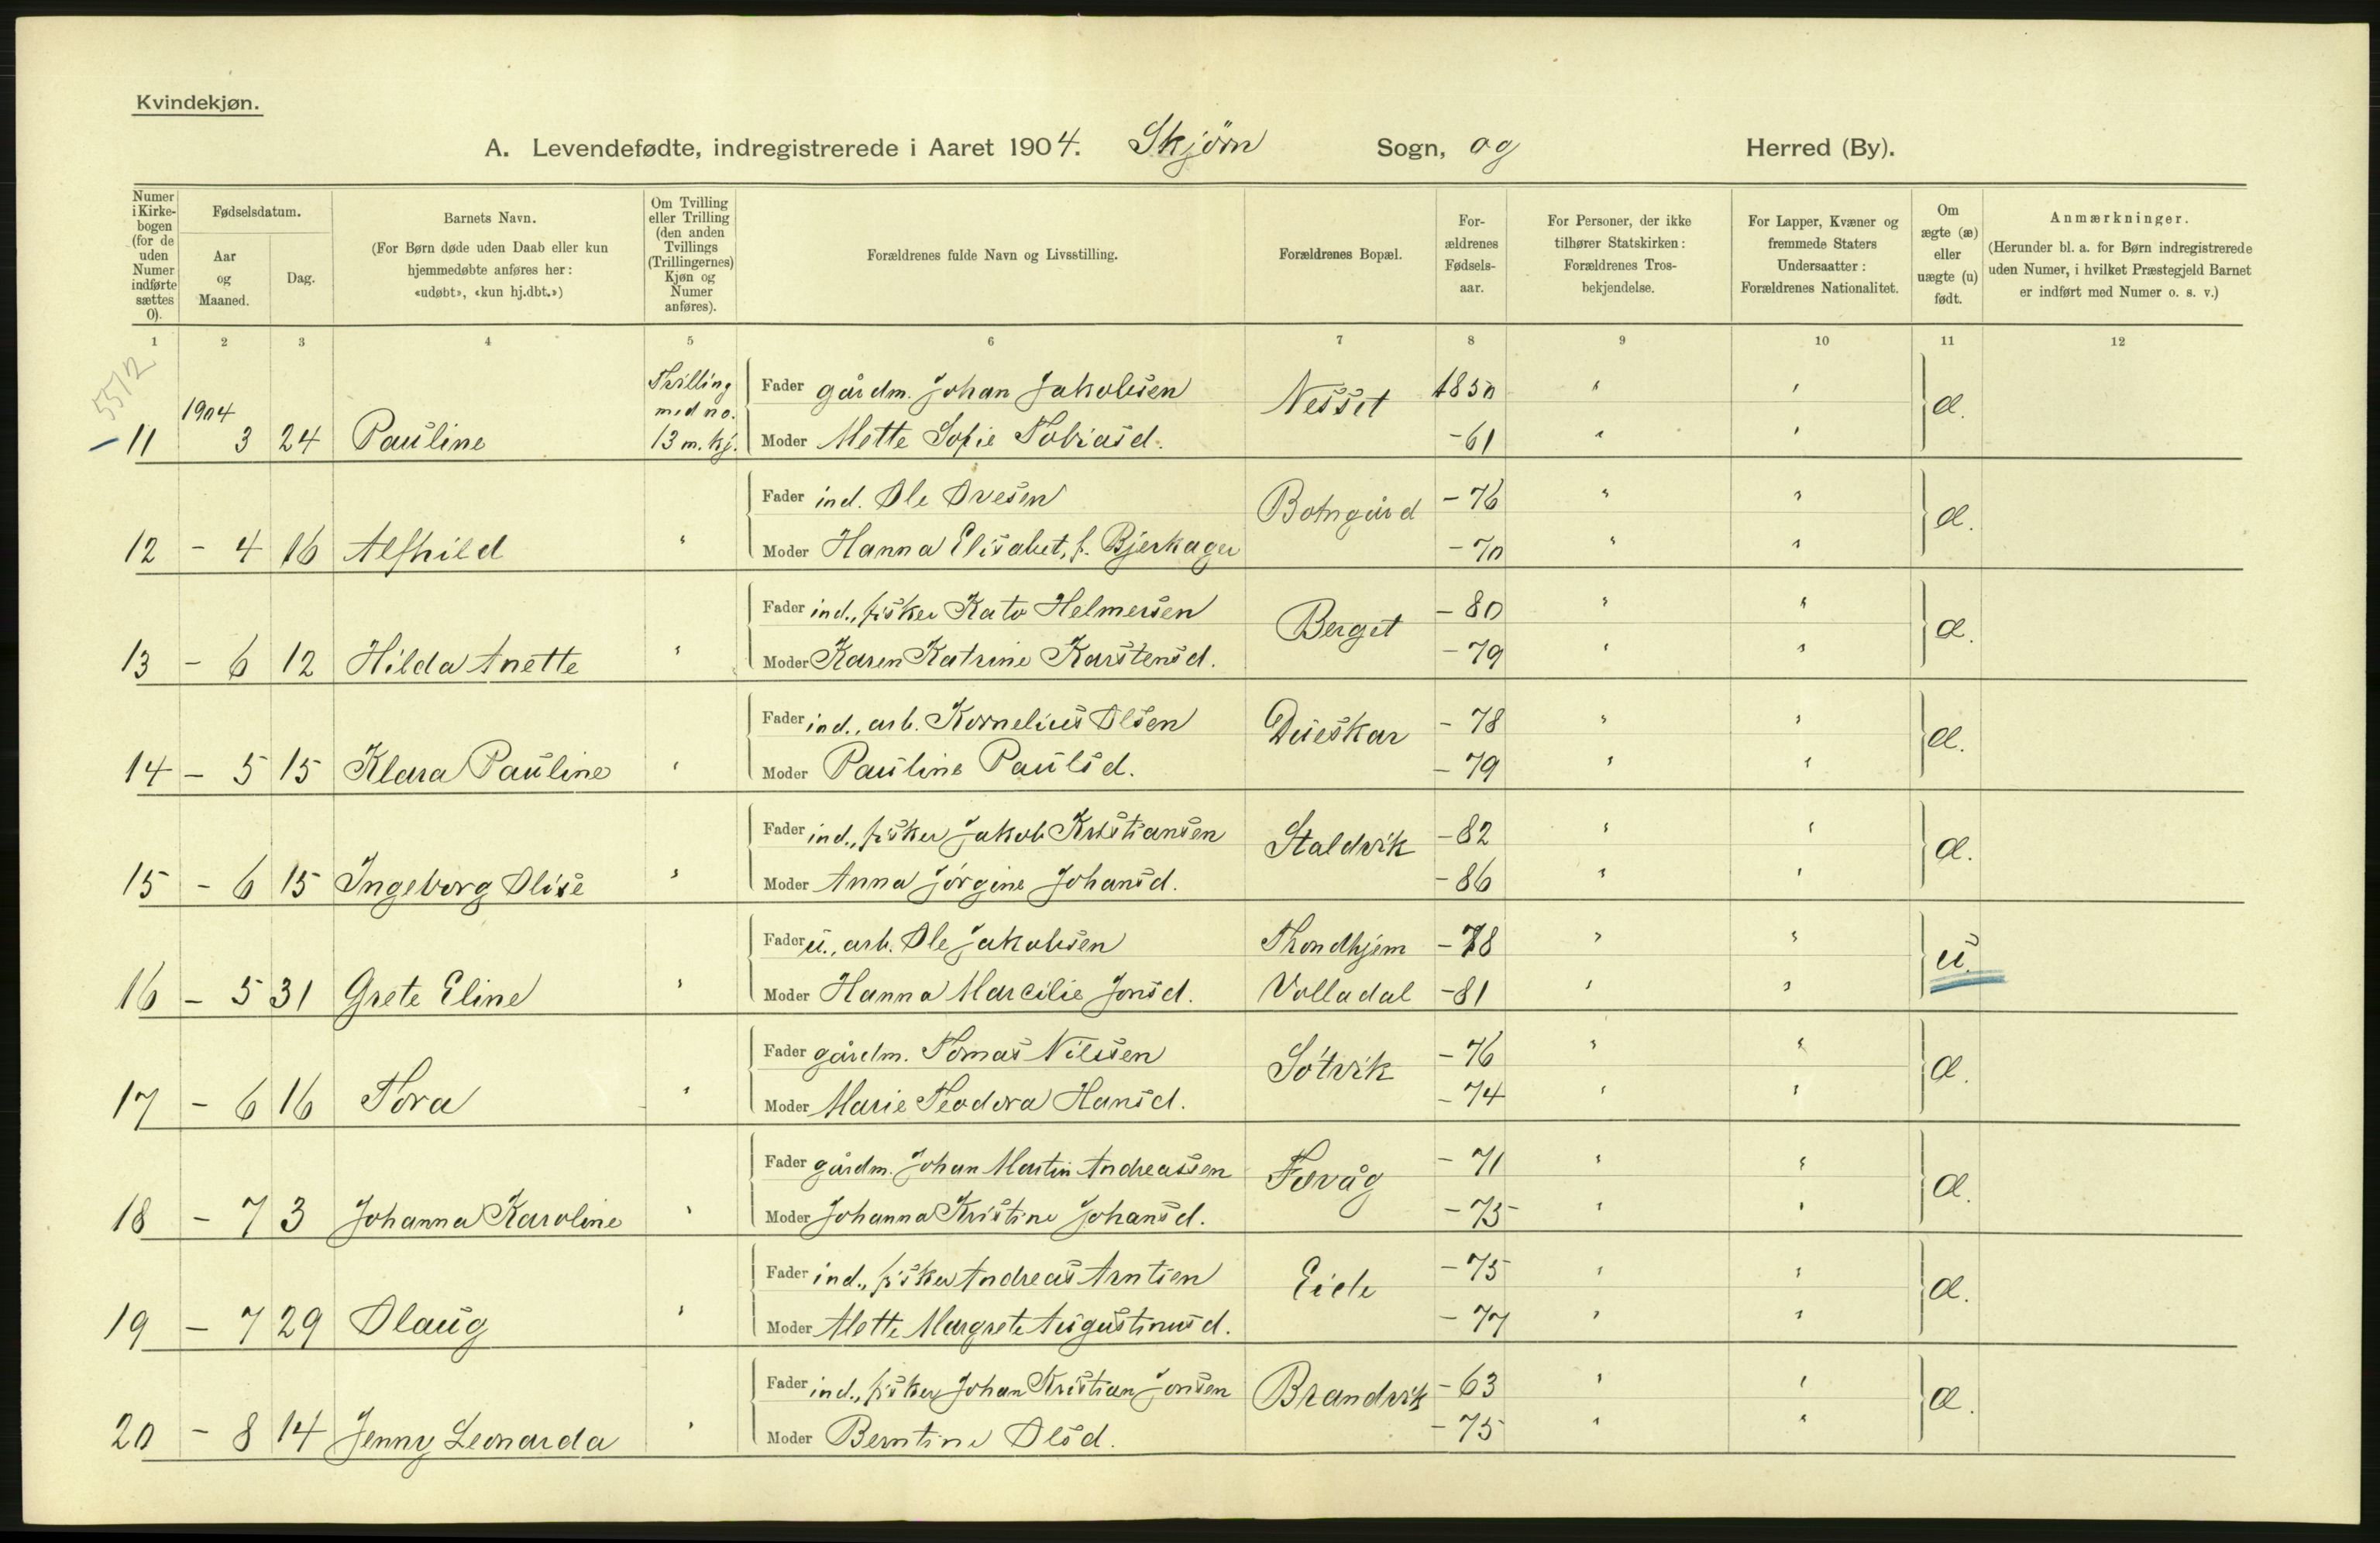 Kvindekjøn.
A. Levendefødte, indregistrerede i Aaret 1904. Skjörn Sogn, og Herred (By).
Numer i Kirkebogen (for de uden Numer indførte sættes 0).
Fødselsdatum.
Aar og Maaned.
Dag.
Barnets Navn.
(For Børn døde uden Daab eller kun hjemmedøbte anføres her: «udøbt», «kun hj.dbt.»)
Om Tvilling eller Trilling (den anden Tvillings (Trillingernes) Kjøn og Numer anføres).
Forældrenes fulde Navn og Livsstilling.
Forældrenes Bopæl.
Forældrenes Fødselsaar.
For Personer, der ikke tilhører Statskirken: Forældrenes Trosbekjendelse.
For Lapper, Kvæner og fremmede Staters Undersaatter: Forældrenes Nationalitet.
Om ægte (æ) eller uægte (u) født.
Anmærkninger.
(Herunder bl. a. for Børn indregistrerede uden Numer, i hvilket Præstegjeld Barnet er indført med Numer o. s. v.)
1 2 3 4 5 6 7 8 9 10 11 12
5512
Fader gårdm. Johan Jakobsen Nesset 1850 " " æ.
11 1904 3 24 Pauline Tvilling med no. 13 m. kj. Moder Mette Sofie Tobiasd. -61 " "
Fader ind. Ole Ovesen Botngård -76 " " æ.
12 - 4 16 Alfhild " Moder Hanna Elisabet, f. Bjerkager -70 " "
Fader ind., fisker Kato Helmersen Berget -80 " " æ.
13 - 6 12 Hilda Anette " Moder Karen Katrine Karstensd. -79 " "
Fader ind., arb. Kornelius Olsen Dueskar -78 " " æ.
14 - 5 15 Klara Pauline " Moder Pauline Paulsd. -79 " "
Fader ind., fisker Jakob Kristiansen Staldvik -82 " " æ.
15 - 6 15 Ingeborg Olise " Moder Anna Jörgine Johansd. -86 " "
Fader u., arb. Ole Jakobsen Trondhjem -78 " " u.
16 - 5 31 Grete Eline " Moder Hanna Marcilie Jonsd. Volladal -81 " "
Fader gårdm. Tomas Nilssen Sötvik -76 " " æ.
17 - 6 16 Tora " Moder Marie Teodora Hansd. -74 " "
Fader gårdm. Johan Martin Andreassen Fævåg -71 " " æ.
18 - 7 3 Johanna Karoline " Moder Johanna Kristine Johansd. -73 " "
Fader ind., fisker Andreas Arntsen Eide -75 " " æ.
19 - 7 29 Olaug " Moder Mette Margrete Augustinusd. -77 " "
Fader ind., fisker Johan Kristian Jonsen Brandvik -63 " " æ.
20 - 8 14 Jenny Leonarda " Moder Berntine Olsd. -75 " "